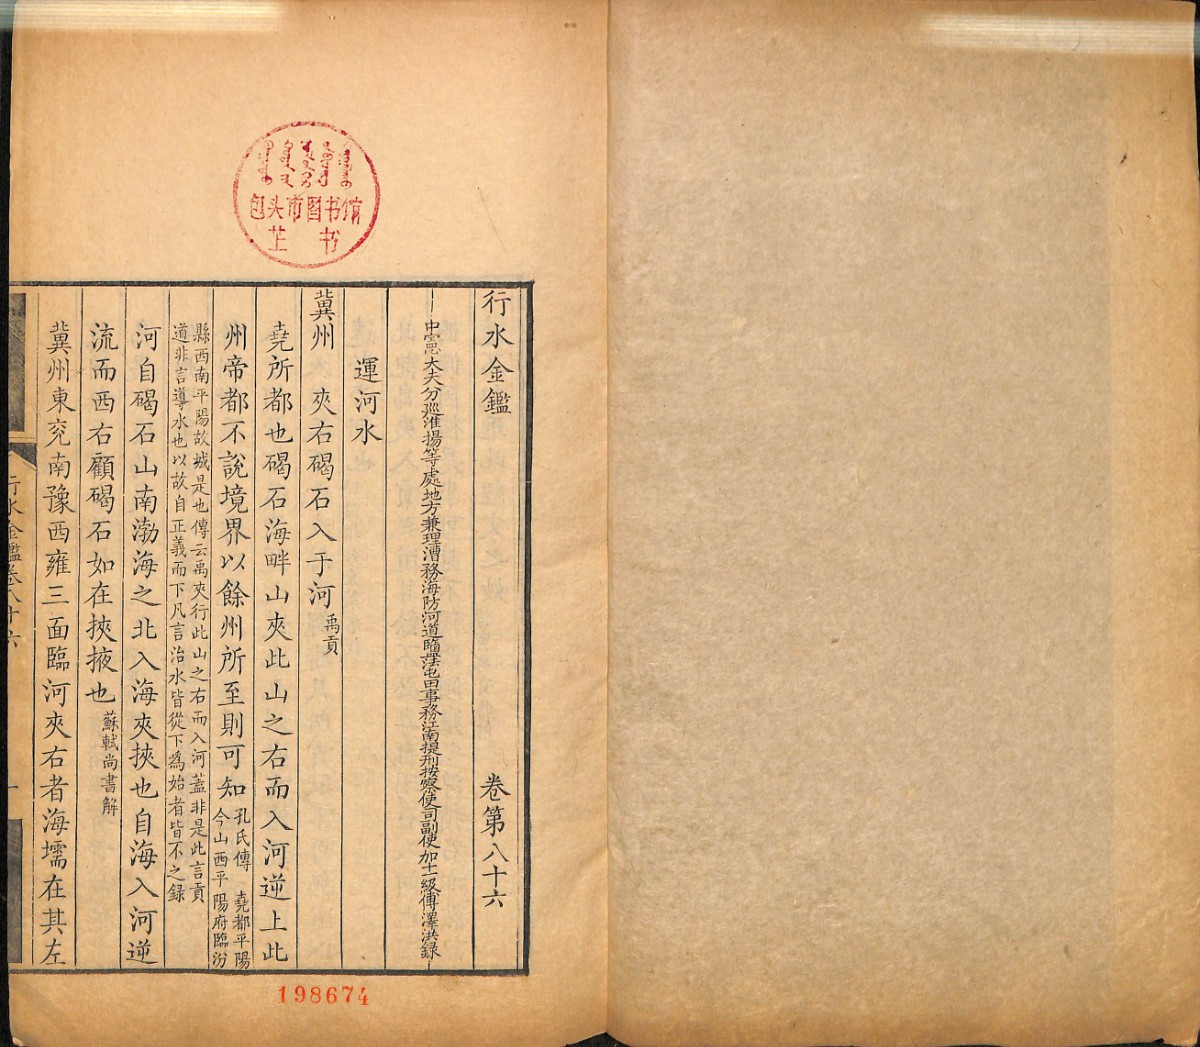 包头市图书馆
行水金鑑 卷第八十六
中憲大夫分巡淮揚等處地方兼理漕務海防河道驛鹽屯田事務江南提刑按察使司副使加十一級傅澤洪錄
運河水
冀州 夾右碣石入于河禹貢
堯所都也碣石海畔山夾此山之右而入河逆上此
州帝都不說境界以餘州所至則可知孔氏傳 堯都平陽今山西平陽府臨汾
縣西南平陽故城是也傳云禹夾行此山之右而入河蓋非是此言貢
道非言導水也以故自正義而下凡言治水皆從下為始者皆不之錄
河自碣石山南渤海之北入海夾挾也自海入河逆
流而西右顧碣石如在挾掖也蘇軾尚書解
冀州東兗南豫西雍三面臨河夾右者海壖在其左
行水金鑑卷八十六
一
198674